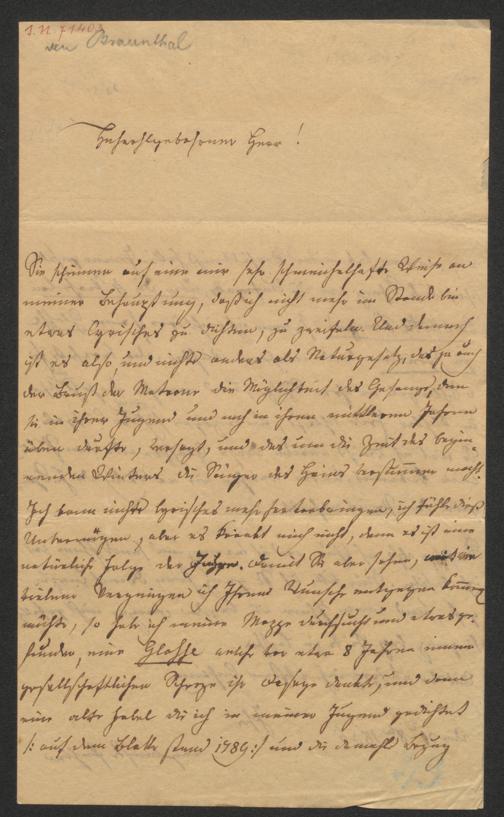 I.N. 71403
von Braunthal
Hochwohlgeborner Herr!
Sie scheinen auf eine mir sehr schmeichelhafte Weise an
meiner Behauptung, daß ich nicht mehr im Stande bin
etwas Lyrisches zu dichten, zu zweifeln. Und dennoch
ist es also, und nichts anders als Naturgesetz, das ja auch
der Brust der Matrone die Möglichkeit des Gesangs, den
sie in ihrer Jugend und noch in ihren mittleren Jahren
üben durfte, versagt, und das um die Zeit des begin-
nenden Winters die Sänger des Hains verstummen macht.
Ich kann nichts lyrisches mehr hervorbringen, ich fühle dieß
Unvermögen, aber es kränkt mich nicht, denn es ist eine
natürliche Folge der Jahre. Damit Sie aber sehen, mit wie
vielem Vergnügen ich Ihrem Wunsche entgegen kommen
möchte, so habe ich meine Mappe durchsucht und etwas ge-
funden, eine Glosse welche vor etwa 8 Jahren einem
gesellschaftlichen Scherze ihr Daseyn dankte, und dann
eine alte Fabel die ich in meiner Jugend gedichtet
/: auf dem Blatte stand 1789 :/ und die damahls Bezug